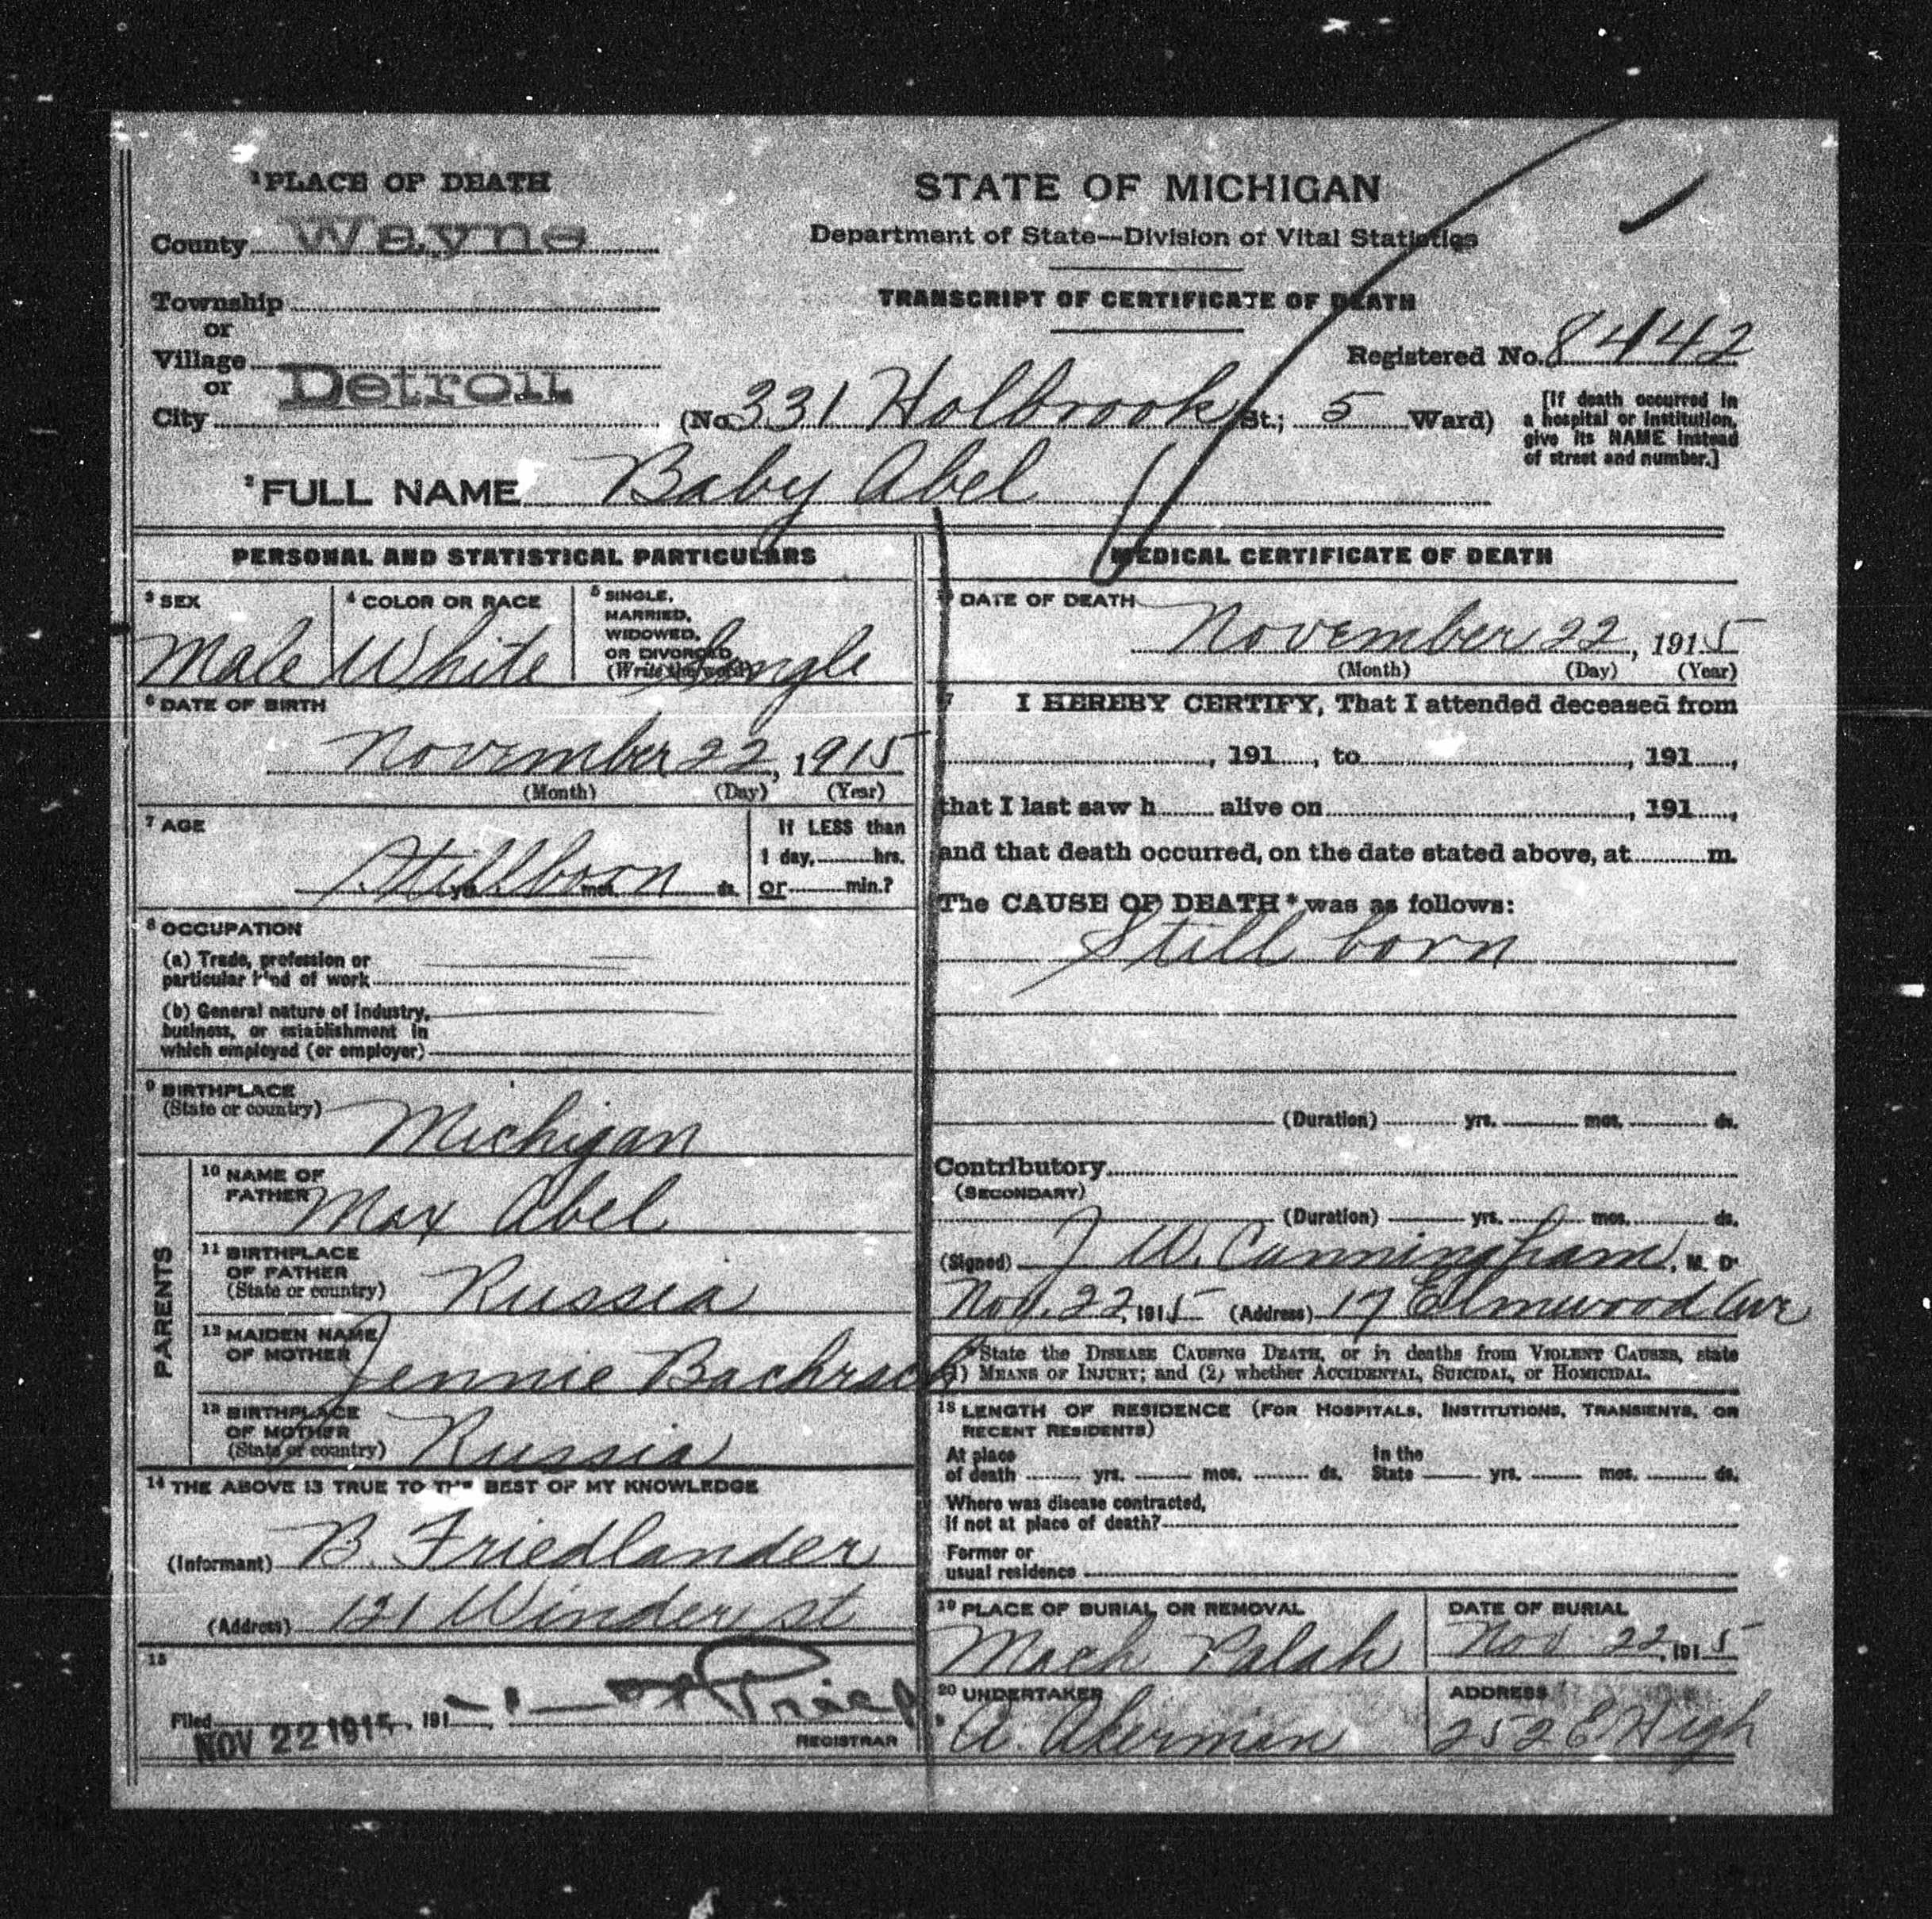 1 PLACE OF DEATH
County Wayne
Township
or
Village
or
City Detroit
STATE OF MICHIGAN
Department of State—Division of Vital Statistics
TRANSCRIPT OF CERTIFICATE OF DEATH
Registered No. 8442
(No. 331 Holbrook St.; 5 Ward)
[If death occurred in
a hospital or institution,
give its NAME instead
of street and number.]
2 FULL NAME Baby Abel
PERSONAL AND STATISTICAL PARTICULARS
3 SEX
Male
4 COLOR OR RACE
White
5 SINGLE,
MARRIED,
WIDOWED,
OR DIVORCED
(Write the word)
Single
6 DATE OF BIRTH
November 22, 1915
(Month) (Day) (Year)
7 AGE
Stillborn
yrs. mos. ds.
If LESS than
1 day, hrs.
or min.?
8 OCCUPATION
(a) Trade, profession or
particular kind of work
(b) General nature of industry,
business, or establishment in
which employed (or employer)
9 BIRTHPLACE
(State or country)
Michigan
PARENTS
10 NAME OF
FATHER
Max Abel
11 BIRTHPLACE
OF FATHER
(State or country)
Russia
12 MAIDEN NAME
OF MOTHER
Jennie Bachrach
13 BIRTHPLACE
OF MOTHER
(State or country)
Russia
14 THE ABOVE IS TRUE TO THE BEST OF MY KNOWLEDGE
(Informant) B. Friedlander
(Address) 121 Winder st
15
Filed NOV 22 1915, 191
REGISTRAR
MEDICAL CERTIFICATE OF DEATH
DATE OF DEATH
November 22, 1915
(Month) (Day) (Year)
17 I HEREBY CERTIFY, That I attended deceased from
, 191 , to , 191 ,
that I last saw h alive on , 191 ,
and that death occurred, on the date stated above, at m.
The CAUSE OF DEATH* was as follows:
Still born
(Duration) yrs. mos. ds.
Contributory
(SECONDARY)
(Duration) yrs. mos. ds.
(Signed) J W. Cunningham, M. D.
Nov. 22, 1915 (Address) 17 Elmwood Ave
*State the DISEASE CAUSING DEATH, or in deaths from VIOLENT CAUSES, state
(1) MEANS OF INJURY; and (2) whether ACCIDENTAL, SUICIDAL, or HOMICIDAL.
18 LENGTH OF RESIDENCE (FOR HOSPITALS, INSTITUTIONS, TRANSIENTS, OR
RECENT RESIDENTS)
At place
of death yrs. mos. ds.
In the
State yrs. mos. ds.
Where was disease contracted,
if not at place of death?
Former or
usual residence
19 PLACE OF BURIAL OR REMOVAL
Mach Palah
DATE OF BURIAL
Nov 22, 1915
20 UNDERTAKER
A. Akerman
ADDRESS
252 E High